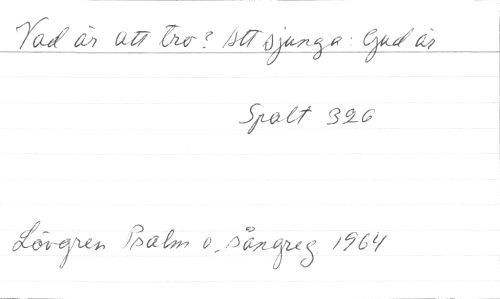 Vad är att tro? Att sjunga: Gud är
Spalt 326
Lövgren Psalm o. sångreg 1964